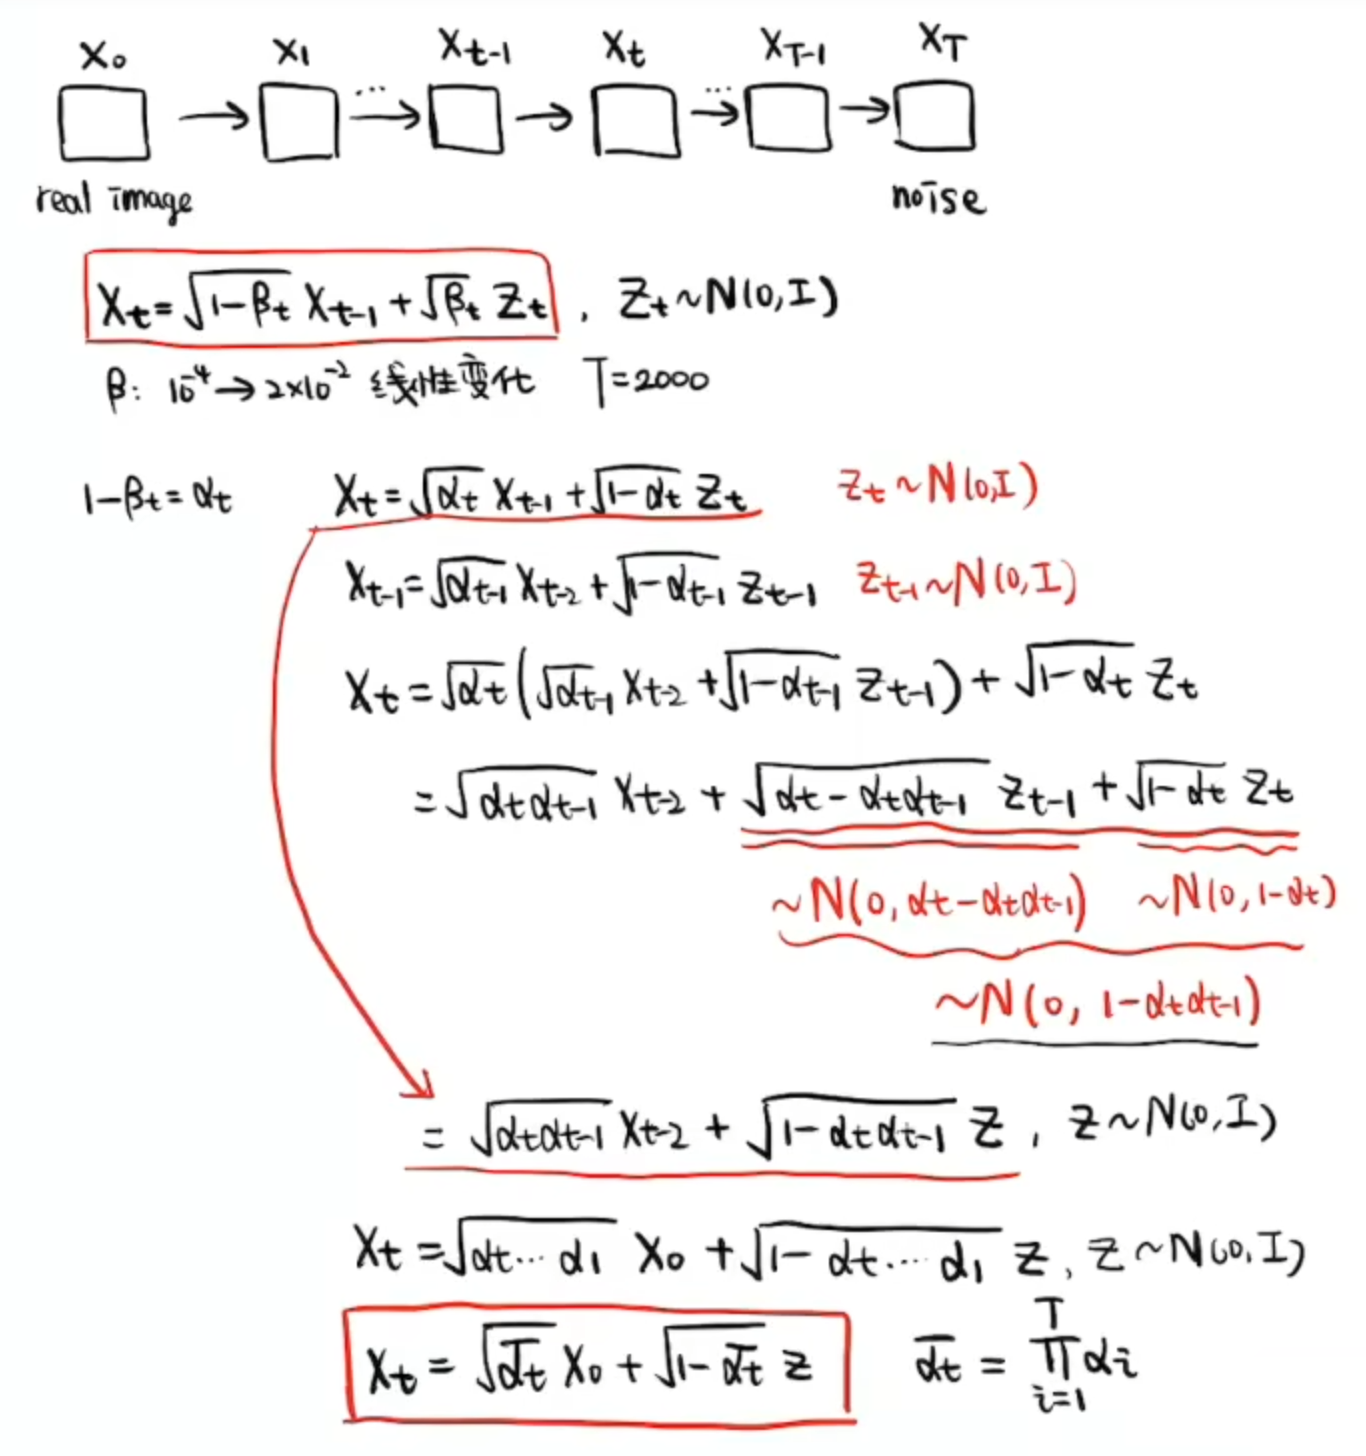 X₀ X₁ Xₜ₋₁ Xₜ X_T₋₁ X_T
→ ... → → ... → →
real image noise
Xₜ = √(1-βₜ) Xₜ₋₁ + √βₜ Zₜ , Zₜ ~ N(0, I)
β: 10⁻⁴ → 2×10⁻² 线性变化 T=2000
1-βₜ = αₜ Xₜ = √αₜ Xₜ₋₁ + √(1-αₜ) Zₜ Zₜ ~ N(0,I)
Xₜ₋₁ = √αₜ₋₁ Xₜ₋₂ + √(1-αₜ₋₁) Zₜ₋₁ Zₜ₋₁ ~ N(0,I)
Xₜ = √αₜ (√αₜ₋₁ Xₜ₋₂ + √(1-αₜ₋₁) Zₜ₋₁) + √(1-αₜ) Zₜ
= √(αₜαₜ₋₁) Xₜ₋₂ + √(αₜ-αₜαₜ₋₁) Zₜ₋₁ + √(1-αₜ) Zₜ
~N(0, αₜ-αₜαₜ₋₁) ~N(0, 1-αₜ)
~N(0, 1-αₜαₜ₋₁)
= √(αₜαₜ₋₁) Xₜ₋₂ + √(1-αₜαₜ₋₁) Z , Z ~ N(0, I)
Xₜ = √(αₜ...α₁) X₀ + √(1-αₜ...α₁) Z , Z ~ N(0, I)
Xₜ = √ᾱₜ X₀ + √(1-ᾱₜ) Z ᾱₜ = ∏_{i=1}^{T} αᵢ